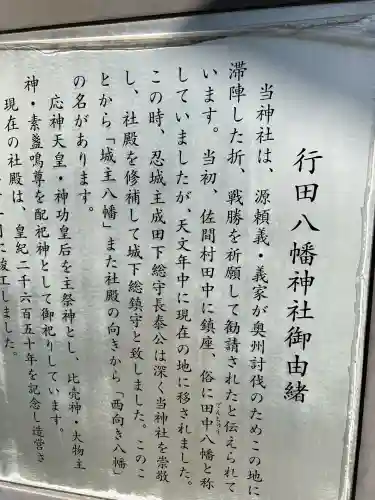 行田八幡神社御由緒
当神社は、源頼義・義家が奥州討伐のためこの地に
滞陣した折、戦勝を祈願して勧請されたと伝えられて
います。当初、佐間村田中に鎮座、俗に田中八幡と称
していましたが、天文年中に現在の地に移されました。
この時、忍城主成田下総守長泰公は深く当神社を崇敬
し、社殿を修補して城下総鎮守と致しました。このこ
とから「城主八幡」また社殿の向きから「西向き八幡」
の名があります。
応神天皇・神功皇后を主祭神とし、比売神・大物主
神・素盞嗚尊を配祀神として御祀りしています。
現在の社殿は、皇紀二千六百五十年を記念し造営さ
に竣工しました。